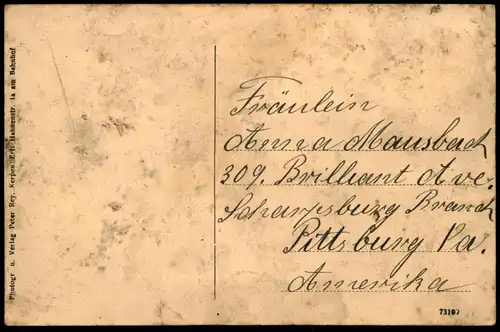 Photogr u. Verlag Peter Rey, Kerpen Erft Hahnenstr. 1a am Bahnhof
Fräulein
Anna Mausbach
309. Brilliant Ave.
Scharpsburg Branch
Pittsburg Pa.
Amerika